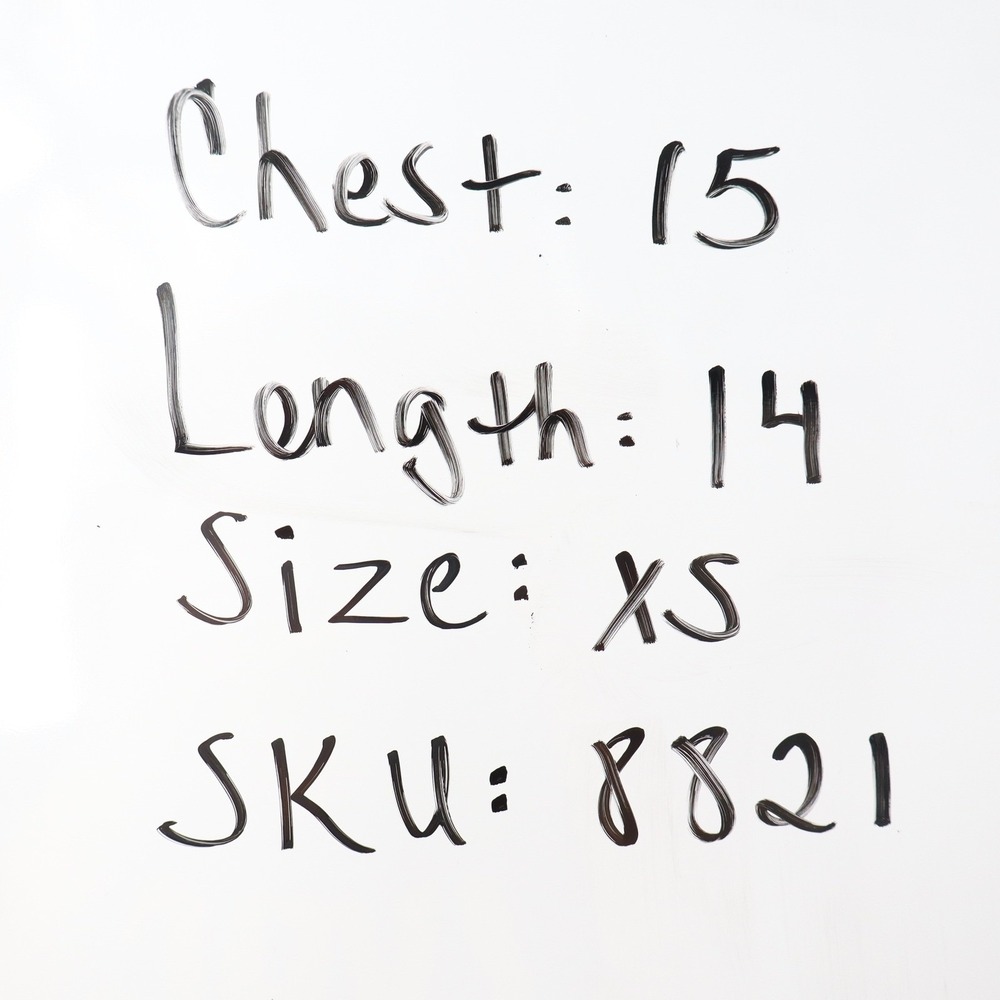 Chest: 15
Length: 14
Size: XS
SKU: 8821